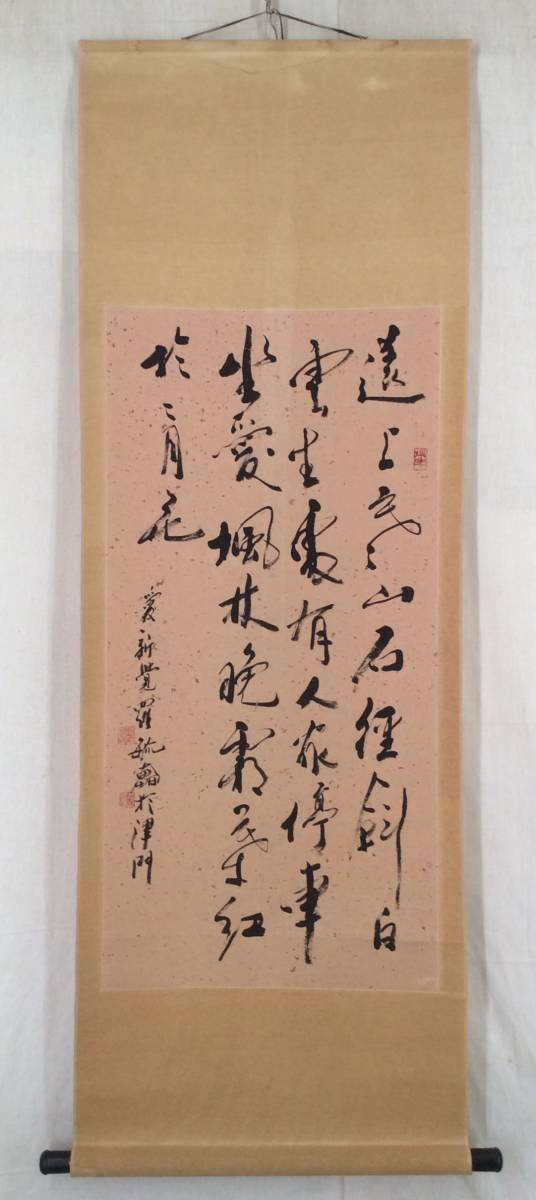 遠上寒山石徑斜白
雲生處有人家停車
坐愛楓林晚霜葉紅
於二月花
愛新覺羅毓於津門